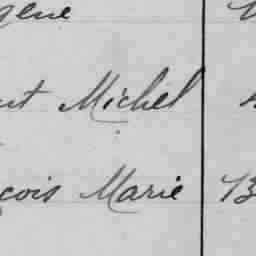 gène
nt Michel
çois Marie 13